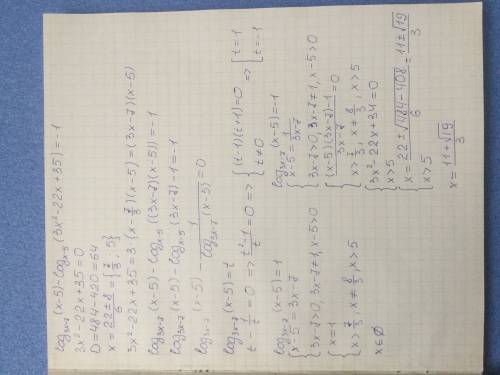 log₃ₓ₋₇ (x-5) - logₓ₋₅ (3x²-22x+35) = -1
3x²-22x+35=0
D=484-420=64
x = (22±8)/6 = {7/3; 5}
3x²-22x+35=3·(x-7/3)(x-5)=(3x-7)(x-5)
log₃ₓ₋₇ (x-5) - logₓ₋₅ ((3x-7)(x-5)) = -1
log₃ₓ₋₇ (x-5) - logₓ₋₅ (3x-7) - 1 = -1
log₃ₓ₋₇ (x-5) - 1/(log₃ₓ₋₇ (x-5)) = 0
log₃ₓ₋₇ (x-5)=t
t - 1/t = 0 => (t²-1)/t = 0 => { (t-1)(t+1)=0 ; t≠0 => [ t=1 ; t=-1
log₃ₓ₋₇ (x-5)=1
{ x-5=3x-7
3x-7>0, 3x-7≠1, x-5>0
{ x=1
x>7/3, x≠8/3, x>5
x∈∅
log₃ₓ₋₇ (x-5)=-1
{ x-5 = 1/(3x-7)
3x-7>0, 3x-7≠1, x-5>0
{ ((x-5)(3x-7)-1)/(3x-7) = 0
x>7/3, x≠8/3, x>5
{ 3x²-22x+34=0
x>5
{ x = (22±√(484-408))/6 = (11±√19)/3
x>5
x = (11+√19)/3